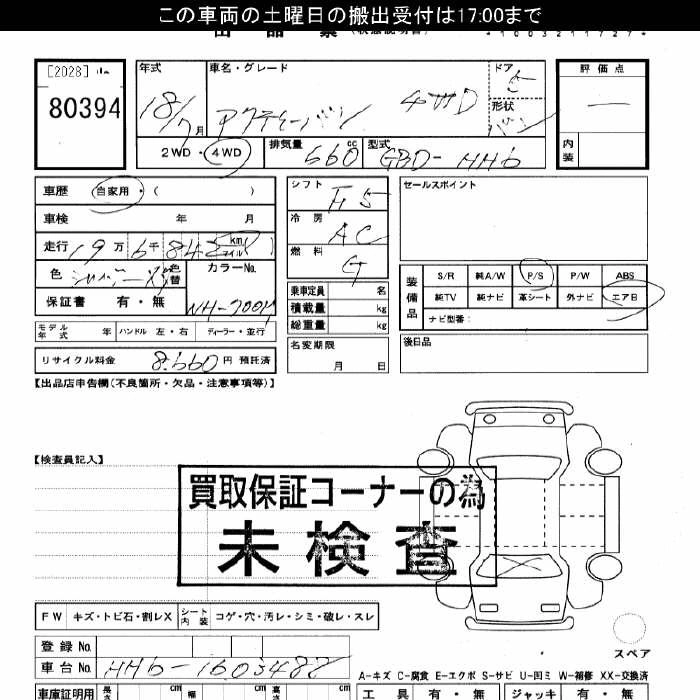 この車両の土曜日の搬出受付は17:00まで
出品票(状態説明書)
*1003211727*
[2028]
80394
年式 車名・グレード ドア 5 評価点
18/7月 アクティーバン 4WD 形状 バン —
2WD・4WD 排気量 660cc 型式 GBD-HH6 内装
車歴 自家用・( )
車検 年 月
走行 19万6千842 km マイル
色 シルバー 色替 カラーNo.
保証書 有・無 NH-700M
モデル年式 年 ハンドル 左・右 ディーラー・並行
リサイクル料金 8,660円 預託済
シフト F5
冷房 AC
燃料 G
乗車定員 名
積載量 kg
総重量 kg
名変期限
月 日
セールスポイント
装備品 S/R 純A/W P/S P/W ABS
純TV 純ナビ 革シート 外ナビ エアB
ナビ型番:
後日品
【出品店申告欄(不良箇所・欠品・注意事項等)】
【検査員記入】
買取保証コーナーの為
未検査
FW キズ・トビ石・割レX シート内装 コゲ・穴・汚レ・シミ・破レ・スレ
スペア
登録No.
車台No. HH6-1603482
A-キズ C-腐食 E-エクボ S-サビ U-凹ミ W-補修 XX-交換済
車庫証明用 長さ cm 幅 cm 高さ cm 工具 有・無 ジャッキ 有・無